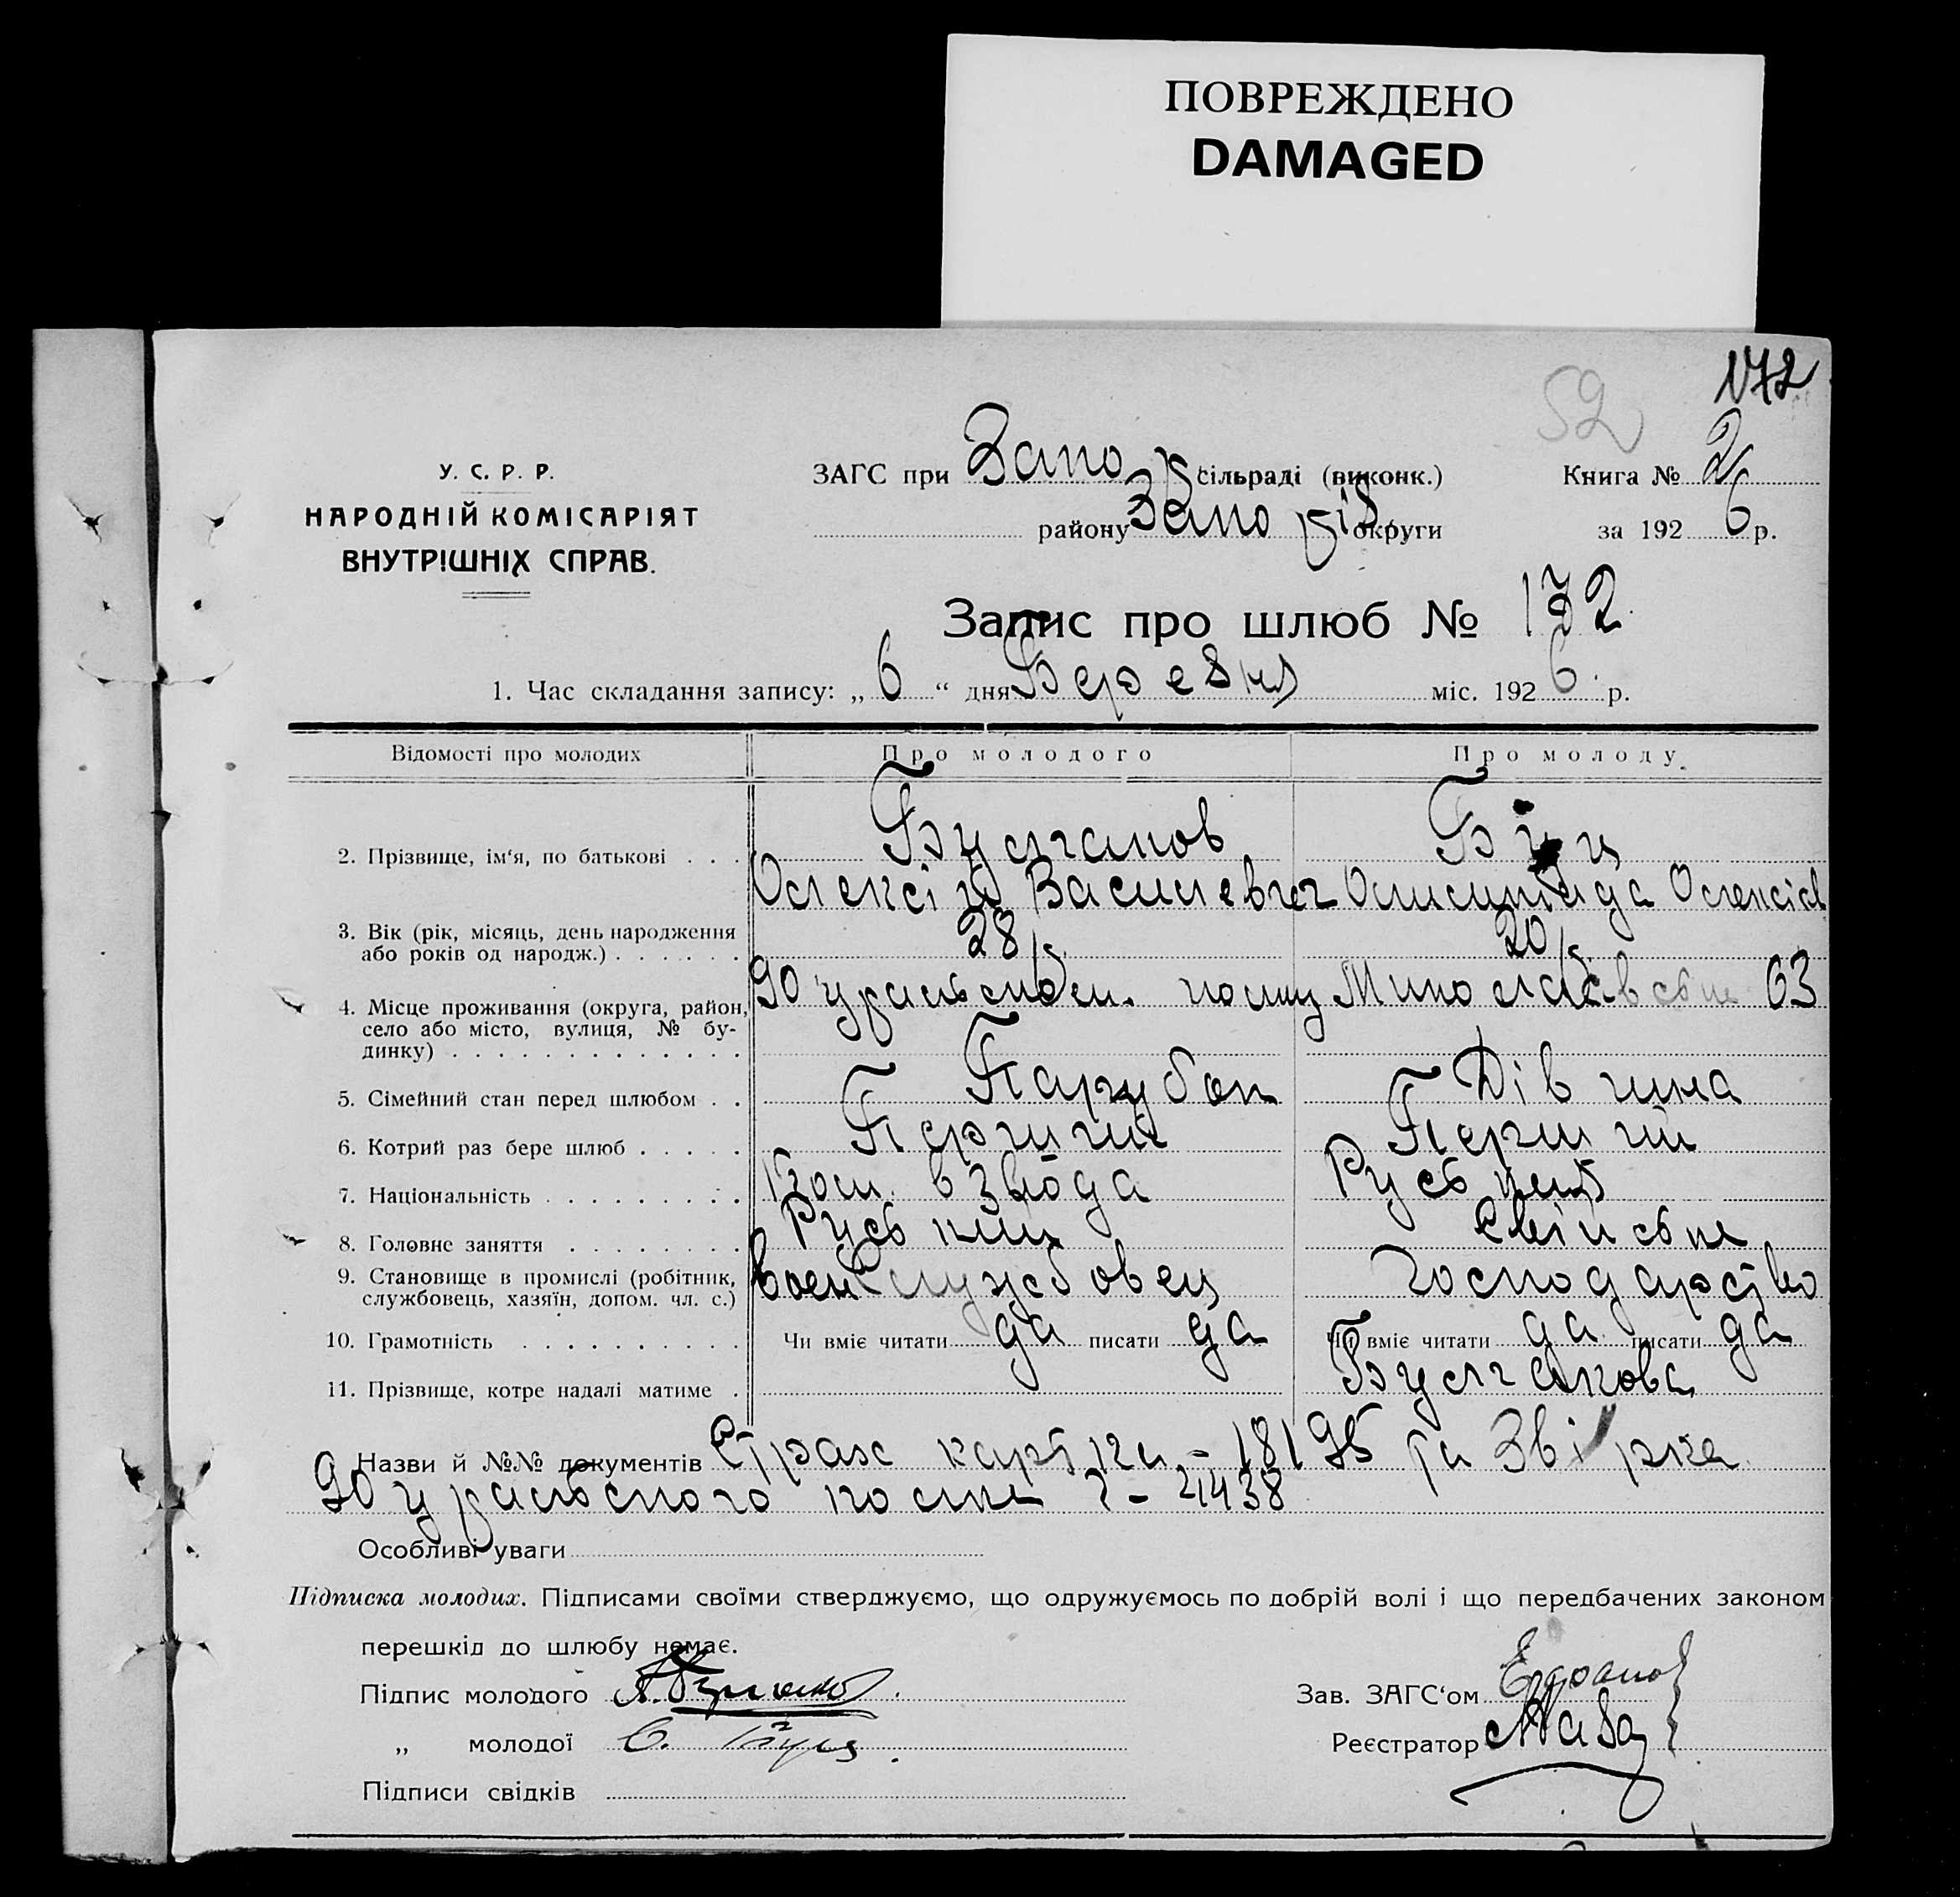 ПОВРЕЖДЕНО
DAMAGED
172
52
У. С. Р. Р.
НАРОДНІЙ КОМІСАРІЯТ
ВНУТРІШНІХ СПРАВ.
ЗАГС при Запо сільраді (виконк.)
району Запоріз округи
Книга № 2
за 1926 р.
Запис про шлюб № 172
1. Час складання запису: „ 6 “ дня Березня міс. 1926 р.
Відомості про молодих Про молодого Про молоду
2. Прізвище, ім‘я, по батькові . . . Булгаков
Олексій Васильевич Олимпіяда Олексієв
3. Вік (рік, місяць, день народження
або років од народж.) . . . . . . 28 р. 20 р.
4. Місце проживання (округа, район,
село або місто, вулиця, № будинку) . . . . . . . . . . . . . 90 уральськ. полку 63
5. Сімейний стан перед шлюбом . . Парубок Дівчина
6. Котрий раз бере шлюб . . . . . Перший Перший
7. Національність . . . . . . . . . Ком. взвода Руська
8. Головне заняття . . . . . . . . Руський Сільське
9. Становище в промислі (робітник,
службовець, хазяїн, допом. чл. с.) воен Службовец Господарство
10. Грамотність . . . . . . . . . . Чи вміє читати да писати да Чи вміє читати да писати да
11. Прізвище, котре надалі матиме . Булгакова
Назви й №№ документів Страх картка - 18195 та
90 уральського полка - 21438
Особливі уваги
Підписка молодих. Підписами своїми стверджуємо, що одружуємось по добрій волі і що передбачених законом
перешкід до шлюбу немає.
Підпис молодого
„ молодої
Підписи свідків
Зав. ЗАГС‘ом
Реєстратор